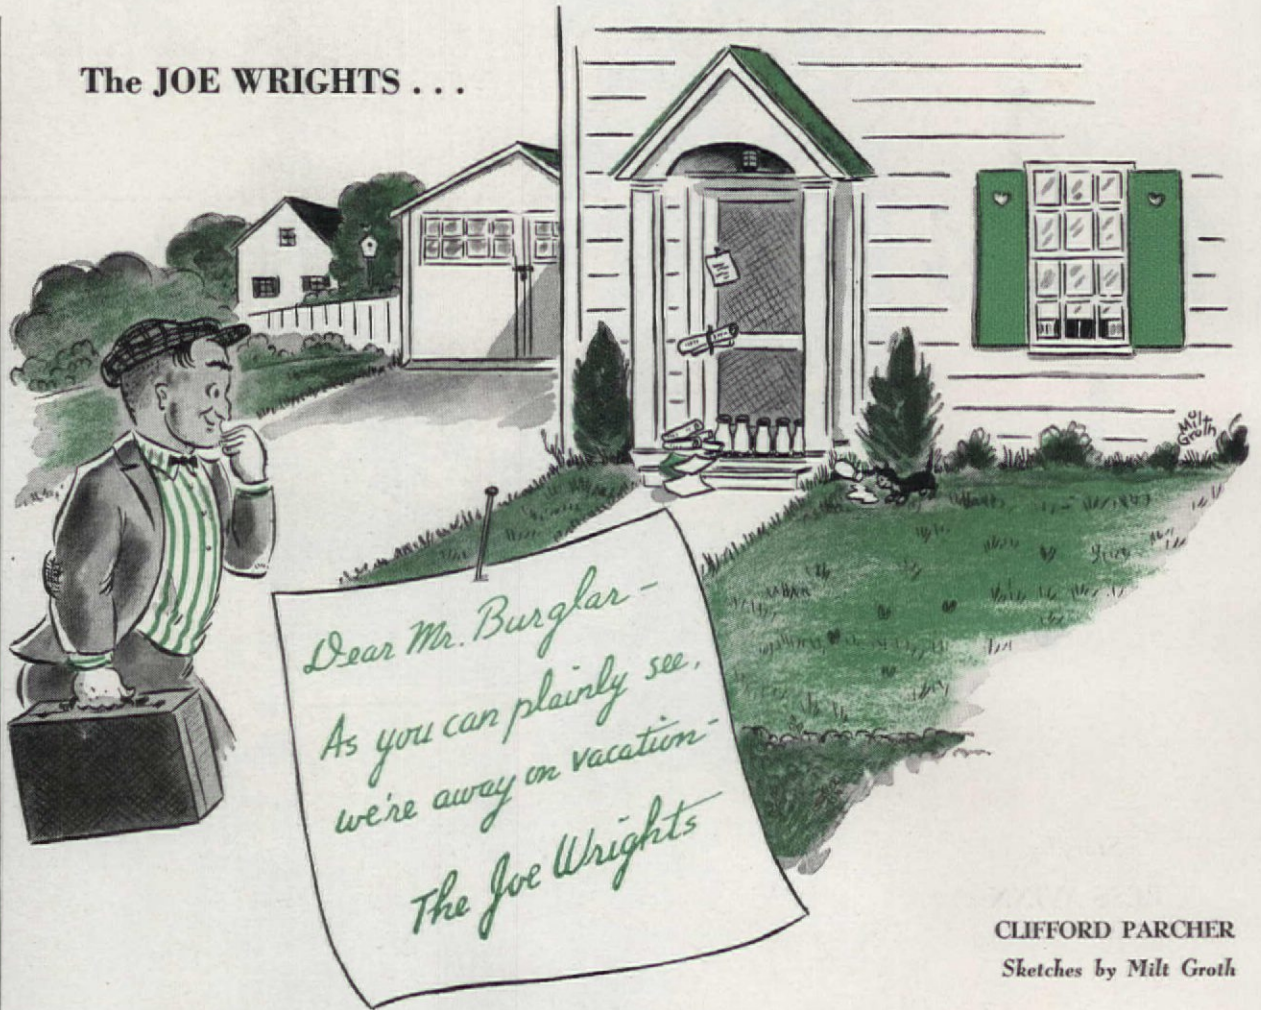 The JOE WRIGHTS . . .
Milt
Groth
Dear Mr. Burglar-
As you can plainly see,
we're away on vacation-
The Joe Wrights
CLIFFORD PARCHER
Sketches by Milt Groth